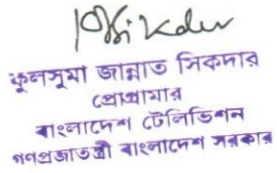 ফুলসুমা জান্নাত সিকদার
প্রোগ্রামার
বাংলাদেশ টেলিভিশন
গণপ্রজাতন্ত্রী বাংলাদেশ সরকার